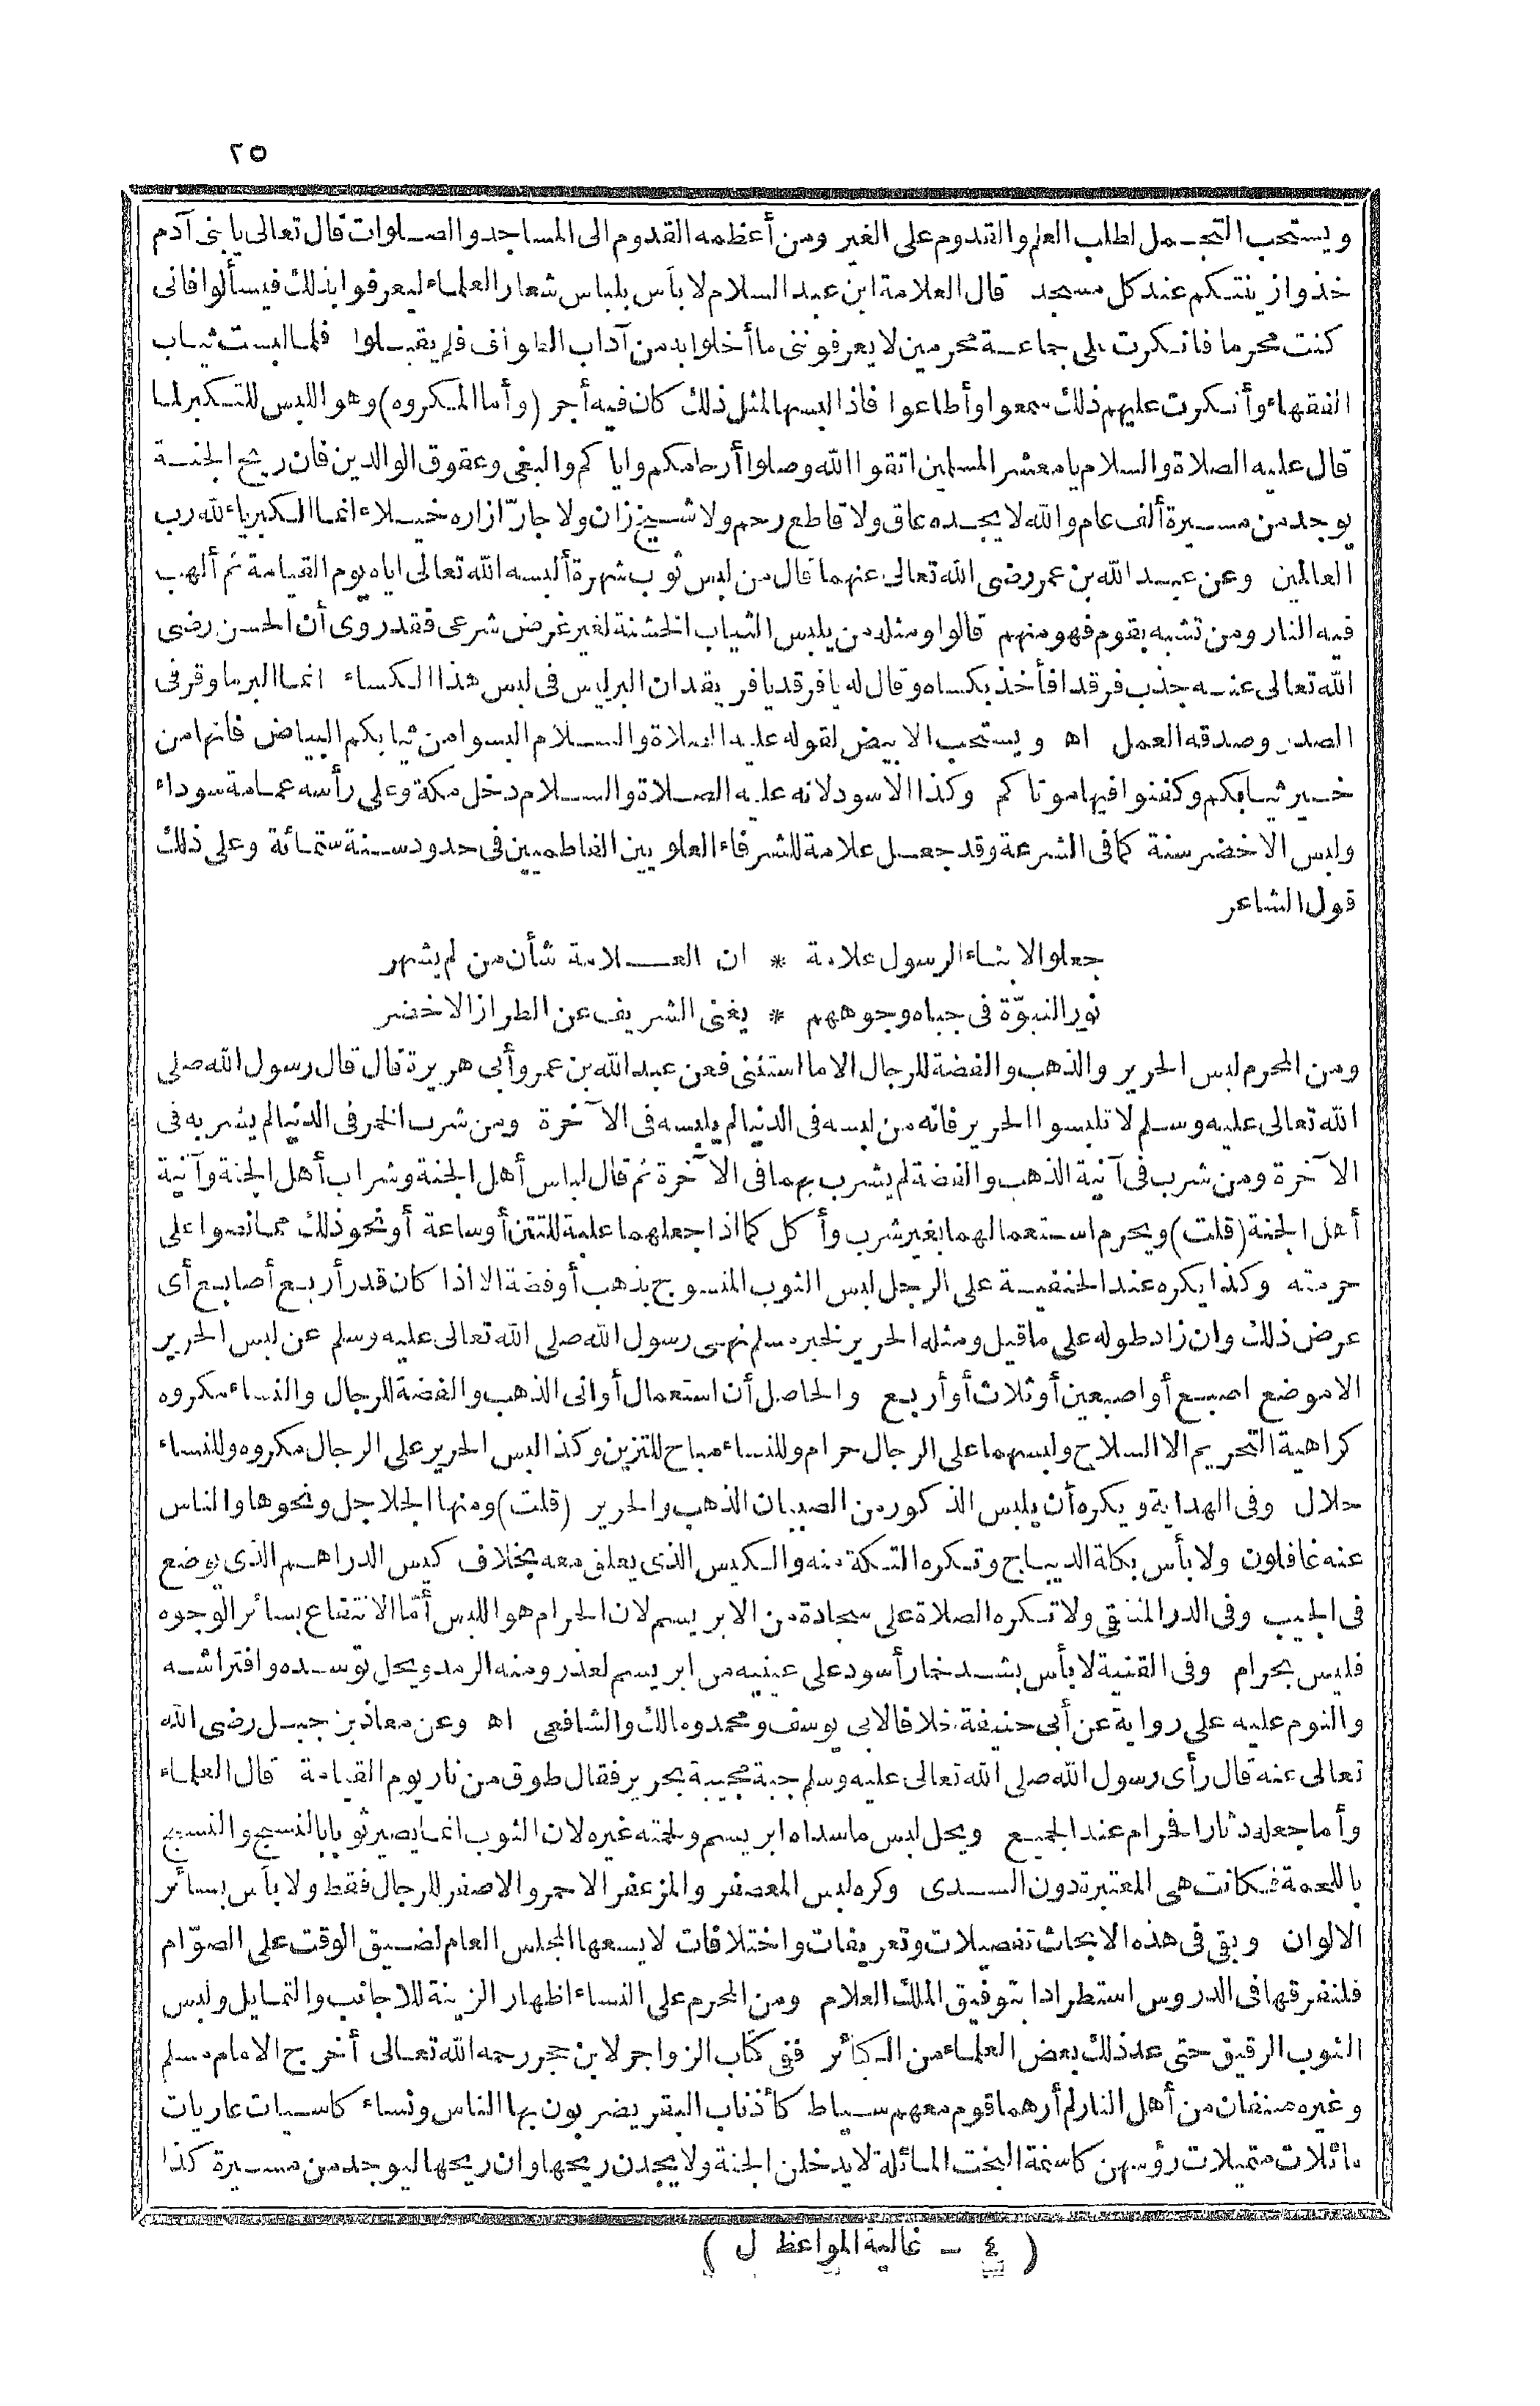 ٢٥
ويستحب التجمل لطلب العلم والقدوم على الغير ومن أعظمه القدوم الى المساجد والصلوات قال تعالى يا بنى آدم
خذوا زينتكم عند كل مسجد قال العلامة ابن عبد السلام لا بأس بلباس شعار العلماء ليعرفوا بذلك فيسألوا فانى
كنت محرما فانكرت على جماعة محرمين لا يعرفوننى ما أخلوا به من آداب الطواف فلم يقبلوا فلما لبست ثياب
الفقهاء وأنكرت عليهم ذلك سمعوا وأطاعوا فاذا لبسها لمثل ذلك كان فيه أجر (وأما المكروه) وهو اللبس للتكبر لما
قال عليه الصلاة والسلام يا معشر المسلمين اتقوا الله وصلوا أرحامكم واياكم والبغى وعقوق الوالدين فان ريح الجنة
يوجد من مسيرة ألف عام والله لا يجده عاق ولا قاطع رحم ولا شيخ زان ولا جارّ ازاره خيلاء انما الكبرياء لله رب
العالمين وعن عبد الله بن عمر رضى الله تعالى عنهما قال من لبس ثوب شهرة ألبسه الله تعالى اياه يوم القيامة ثم ألهب
فيه النار ومن تشبه بقوم فهو منهم قالوا ومثله من يلبس الثياب الخشنة لغير غرض شرعى فقد روى أن الحسن رضى
الله تعالى عنه جذب فرقدا فأخذ بكساه وقال له يا فرقد يا فريقد ان البر ليس فى لبس هذا الكساء انما البر ما وقر فى
الصدر وصدقه العمل اه ويستحب الابيض لقوله عليه الصلاة والسلام البسوا من ثيابكم البياض فانها من
خير ثيابكم وكفنوا فيها موتاكم وكذا الاسود لانه عليه الصلاة والسلام دخل مكة وعلى رأسه عمامة سوداء
ولبس الاخضر سنة كما فى الشرعة وقد جعل علامة للشرفاء العلويين الفاطميين فى حدود سنة ستمائة وعلى ذلك
قول الشاعر
جعلوا لابناء الرسول علامة * ان العلامة شأن من لم يشهر
نور النبوّة فى جباه وجوههم * يغنى الشريف عن الطراز الاخضر
ومن المحرم لبس الحرير والذهب والفضة للرجال الا ما استثنى فعن عبد الله بن عمر وأبى هريرة قال قال رسول الله صلى
الله تعالى عليه وسلم لا تلبسوا الحرير فانه من لبسه فى الدنيا لم يلبسه فى الآخرة ومن شرب الخمر فى الدنيا لم يشربه فى
الآخرة ومن شرب فى آنية الذهب والفضة لم يشرب بهما فى الآخرة ثم قال لباس أهل الجنة وشراب أهل الجنة وآنية
أهل الجنة (قلت) ويحرم استعمالهما بغير شرب وأكل كما اذا جعلهما علبة للتتن أو ساعة أو نحو ذلك مما نصوا على
حرمته وكذا يكره عند الحنفية على الرجل لبس الثوب المنسوج بذهب أو فضة الا اذا كان قدر أربع أصابع أى
عرض ذلك وان زاد طوله على ما قيل ومثله الحرير لخبر مسلم نهى رسول الله صلى الله تعالى عليه وسلم عن لبس الحرير
الا موضع اصبع أو اصبعين أو ثلاث أو أربع والحاصل أن استعمال أوانى الذهب والفضة للرجال والنساء مكروه
كراهية التحريم الا السلاح ولبسهما على الرجال حرام وللنساء مباح للتزين وكذا لبس الحرير على الرجال مكروه وللنساء
حلال وفى الهداية ويكره أن يلبس الذكور من الصبيان الذهب والحرير (قلت) ومنها الجلاجل ونحوها والناس
عنه غافلون ولا بأس بكلة الديباج وتكره التكة منه والكيس الذى يعلق معه بخلاف كيس الدراهم الذى يوضع
فى الجيب وفى الدر المنتقى ولا تكره الصلاة على سجادة من الابريسم لان الحرام هو اللبس أمّا الانتفاع بسائر الوجوه
فليس بحرام وفى القنية لا بأس بشد خمار أسود على عينيه من ابريسم لعذر ومنه الرمد ويحل توسده وافتراشه
والنوم عليه على رواية عن أبى حنيفة خلافا لابى يوسف ومحمد ومالك والشافعى اه وعن معاذ بن جبل رضى الله
تعالى عنه قال رأى رسول الله صلى الله تعالى عليه وسلم جبة مجيبة بحرير فقال طوق من نار يوم القيامة قال العلماء
وأما جعله دثارا فحرام عند الجميع ويحل لبس ما سداه ابريسم ولحمته غيره لان الثوب انما يصير ثوبا بالنسج والنسج
باللحمة فكانت هى المعتبرة دون السدى وكره لبس المعصفر والمزعفر الاحمر والاصفر للرجال فقط ولا بأس بسائر
الالوان وبقى فى هذه الابحاث تفصيلات وتعريفات واختلافات لا يسعها المجلس العام لضيق الوقت على الصوّام
فلنفرقها فى الدروس استطرادا بتوفيق الملك العلام ومن المحرم على النساء اظهار الزينة للاجانب والتمايل ولبس
الثوب الرقيق حتى عد ذلك بعض العلماء من الكبائر ففى كتاب الزواجر لابن حجر رحمه الله تعالى أخرج الامام مسلم
وغيره صنفان من أهل النار لم أرهما قوم معهم سياط كأذناب البقر يضربون بها الناس ونساء كاسيات عاريات
مائلات متميلات رؤسهن كاسنمة البخت المائلة لا يدخلن الجنة ولا يجدن ريحها وان ريحها ليوجد من مسيرة كذا
(٤ - غالية المواعظ ل)